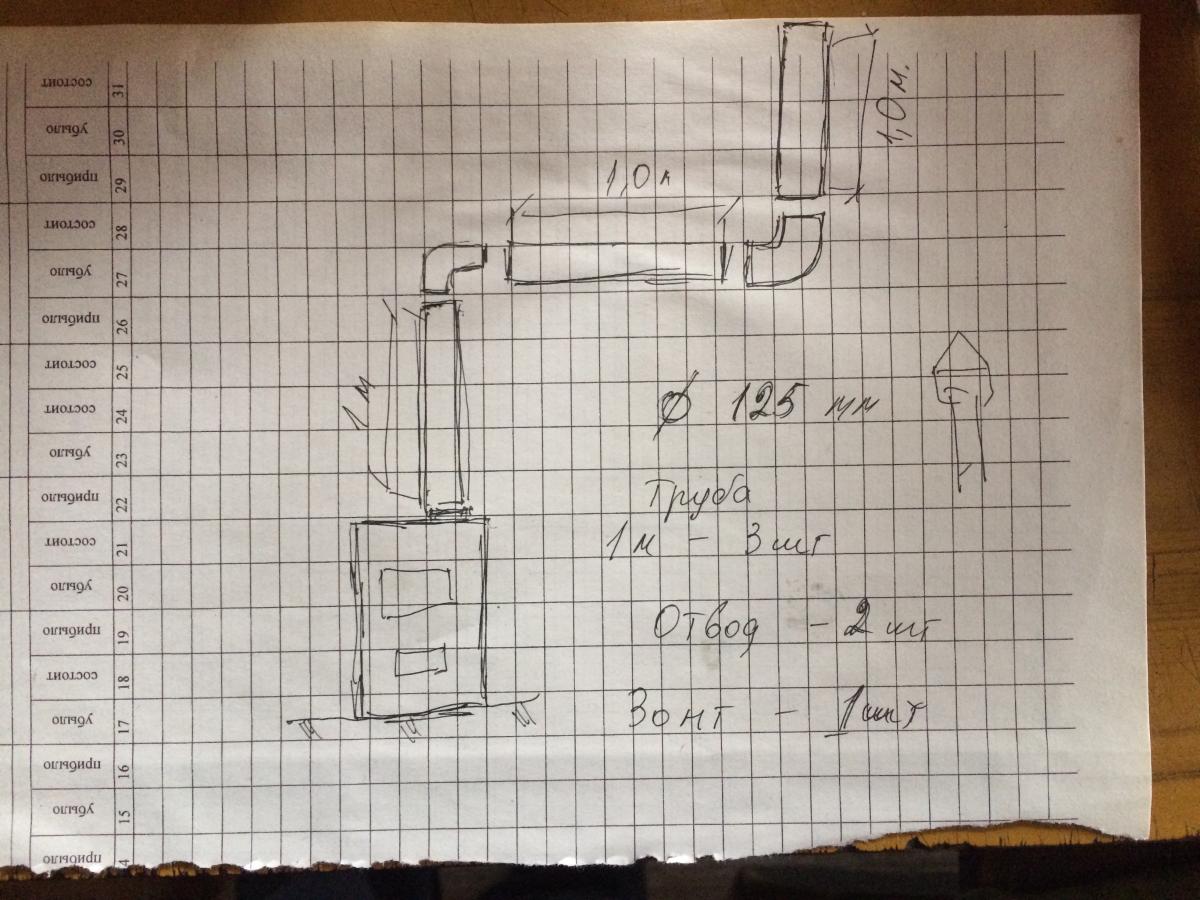 состоит 31
убыло 30
прибыло 29
состоит 28
убыло 27
прибыло 26
состоит 25
состоит 24
убыло 23
прибыло 22
состоит 21
убыло 20
прибыло 19
состоит 18
убыло 17
прибыло 16
убыло 15
прибыло 4
1,0 м.
1,0 м
1 м
Ø 125 мм
Труба
1 м - 3 шт
Отвод - 2 шт
Зонт - 1 шт